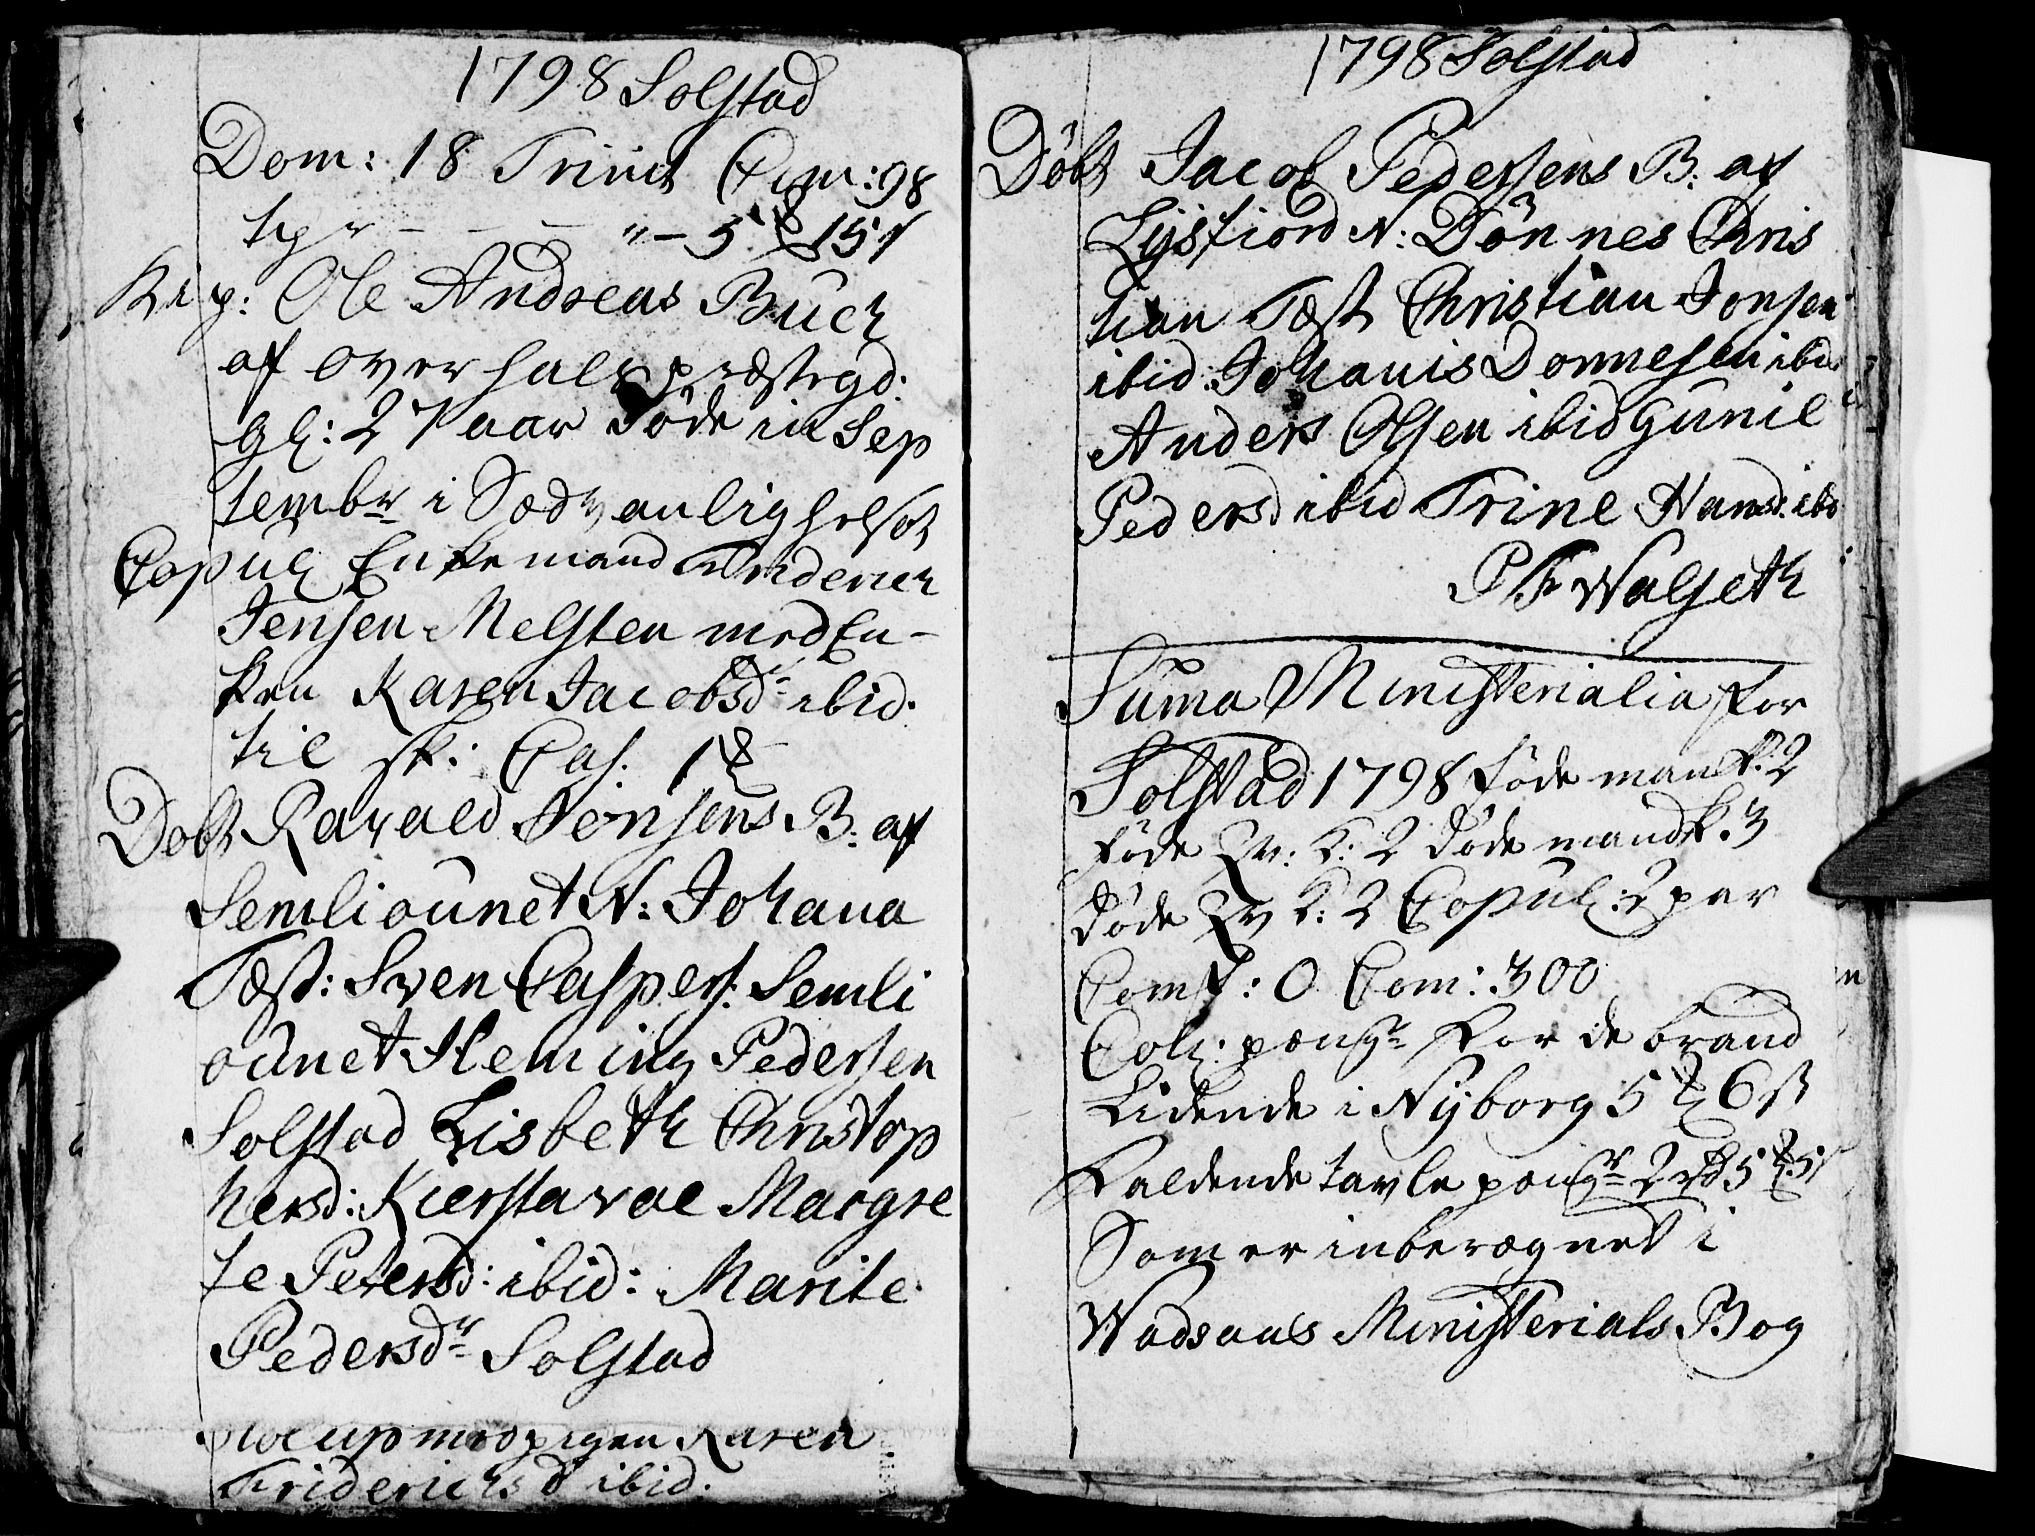 1798 Solstad
Dom: 18 Trinit Com: 98
tpr - - - " - 5 ℔ 15 s
Ole Andreas Buch
af overhals præstegd:
gl: 27 aar døde in Sep
tembr i Sædvanlig
Copul: Enkemand Friderich
Jensen Melsten med En-
ken Karen Jacobsdr ibid.
til
Døbt Ravald Jensens B. af
Semliounet N: Johana
Test: Sven Caspers: Semli
ounet Heming Pedersen
Solstad Lisbeth Christop
hersd: Kierstavae Margre
te Petersd: ibid: Marite
Pedersdr Solstad
med pigen Karen
Friderichsd ibid.
1798 Solstad
Døbt Jacob Pedersens B. af
Lysfiord N: Dönnes Chris
tian Test Christian Jonsen
ibid: Johanis Donnesen ibid
Anders Olsen ibid Gunil
Pedersd ibid Trine Hansd: ibd
P F Walseth
Suma Ministerialia for
Solstad 1798 føde mank: 2
føde Qv: K: 2 døde mandk. 3
døde Qv K: 2 Copul: 2 par
Comf: 0 Com: 300
Col: pengr for de brand
Lidende i Nyborg 5 ℔ 6 s
Faldende tavle pengr 2 rd 5 ℔ 5 s
Som er inberegnet i
Wadsaas Ministerials Bog